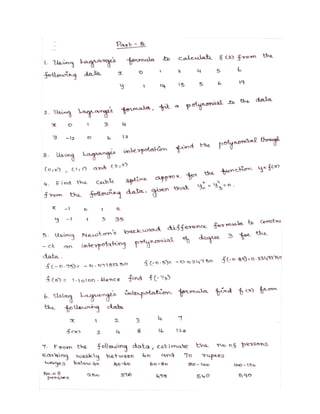 Part - B
1. Using Lagrange's formula to calculate f(3) from the
following data x 0 1 2 4 5 6
y 1 14 15 5 6 19
2. Using Lagrange's formula, fit a polynomial to the data
x 0 1 3 4
y -12 0 6 12
3. Using Lagrange's interpolation find the polynomial through
(0,0), (1,1) and (2,2)
4. Find the Cubic spline approx. for the function y=f(x)
from the following data, given that y₀″ = y₃″ = 0.
x -1 0 1 2
y -1 1 3 35
5. Using Newton's backward difference formula to constru
-ct an interpolating polynomial of degree 3 for the
data.
f(-0.75) = -0.07181250 f(-0.5) = -0.024750
f(0) = 1.10100. Hence find f(-1/3)
6. Using Lagrange's interpolation formula find f(x) from
the following data
x 1 2 3 4 7
f(x) 2 4 8 16 128
7. From the following data, estimate the no.of persons
earning weekly between 60 and 70 rupees
wages below 40 40-60 60-80 80-100 100-120
No.of persons 250